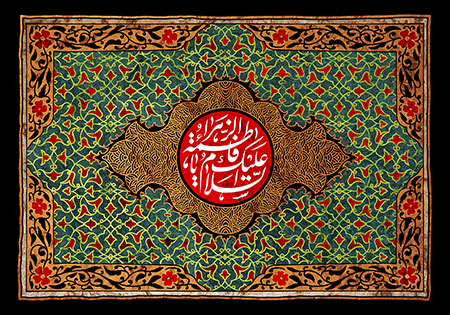 السلام علیک یا فاطمة الزهراء